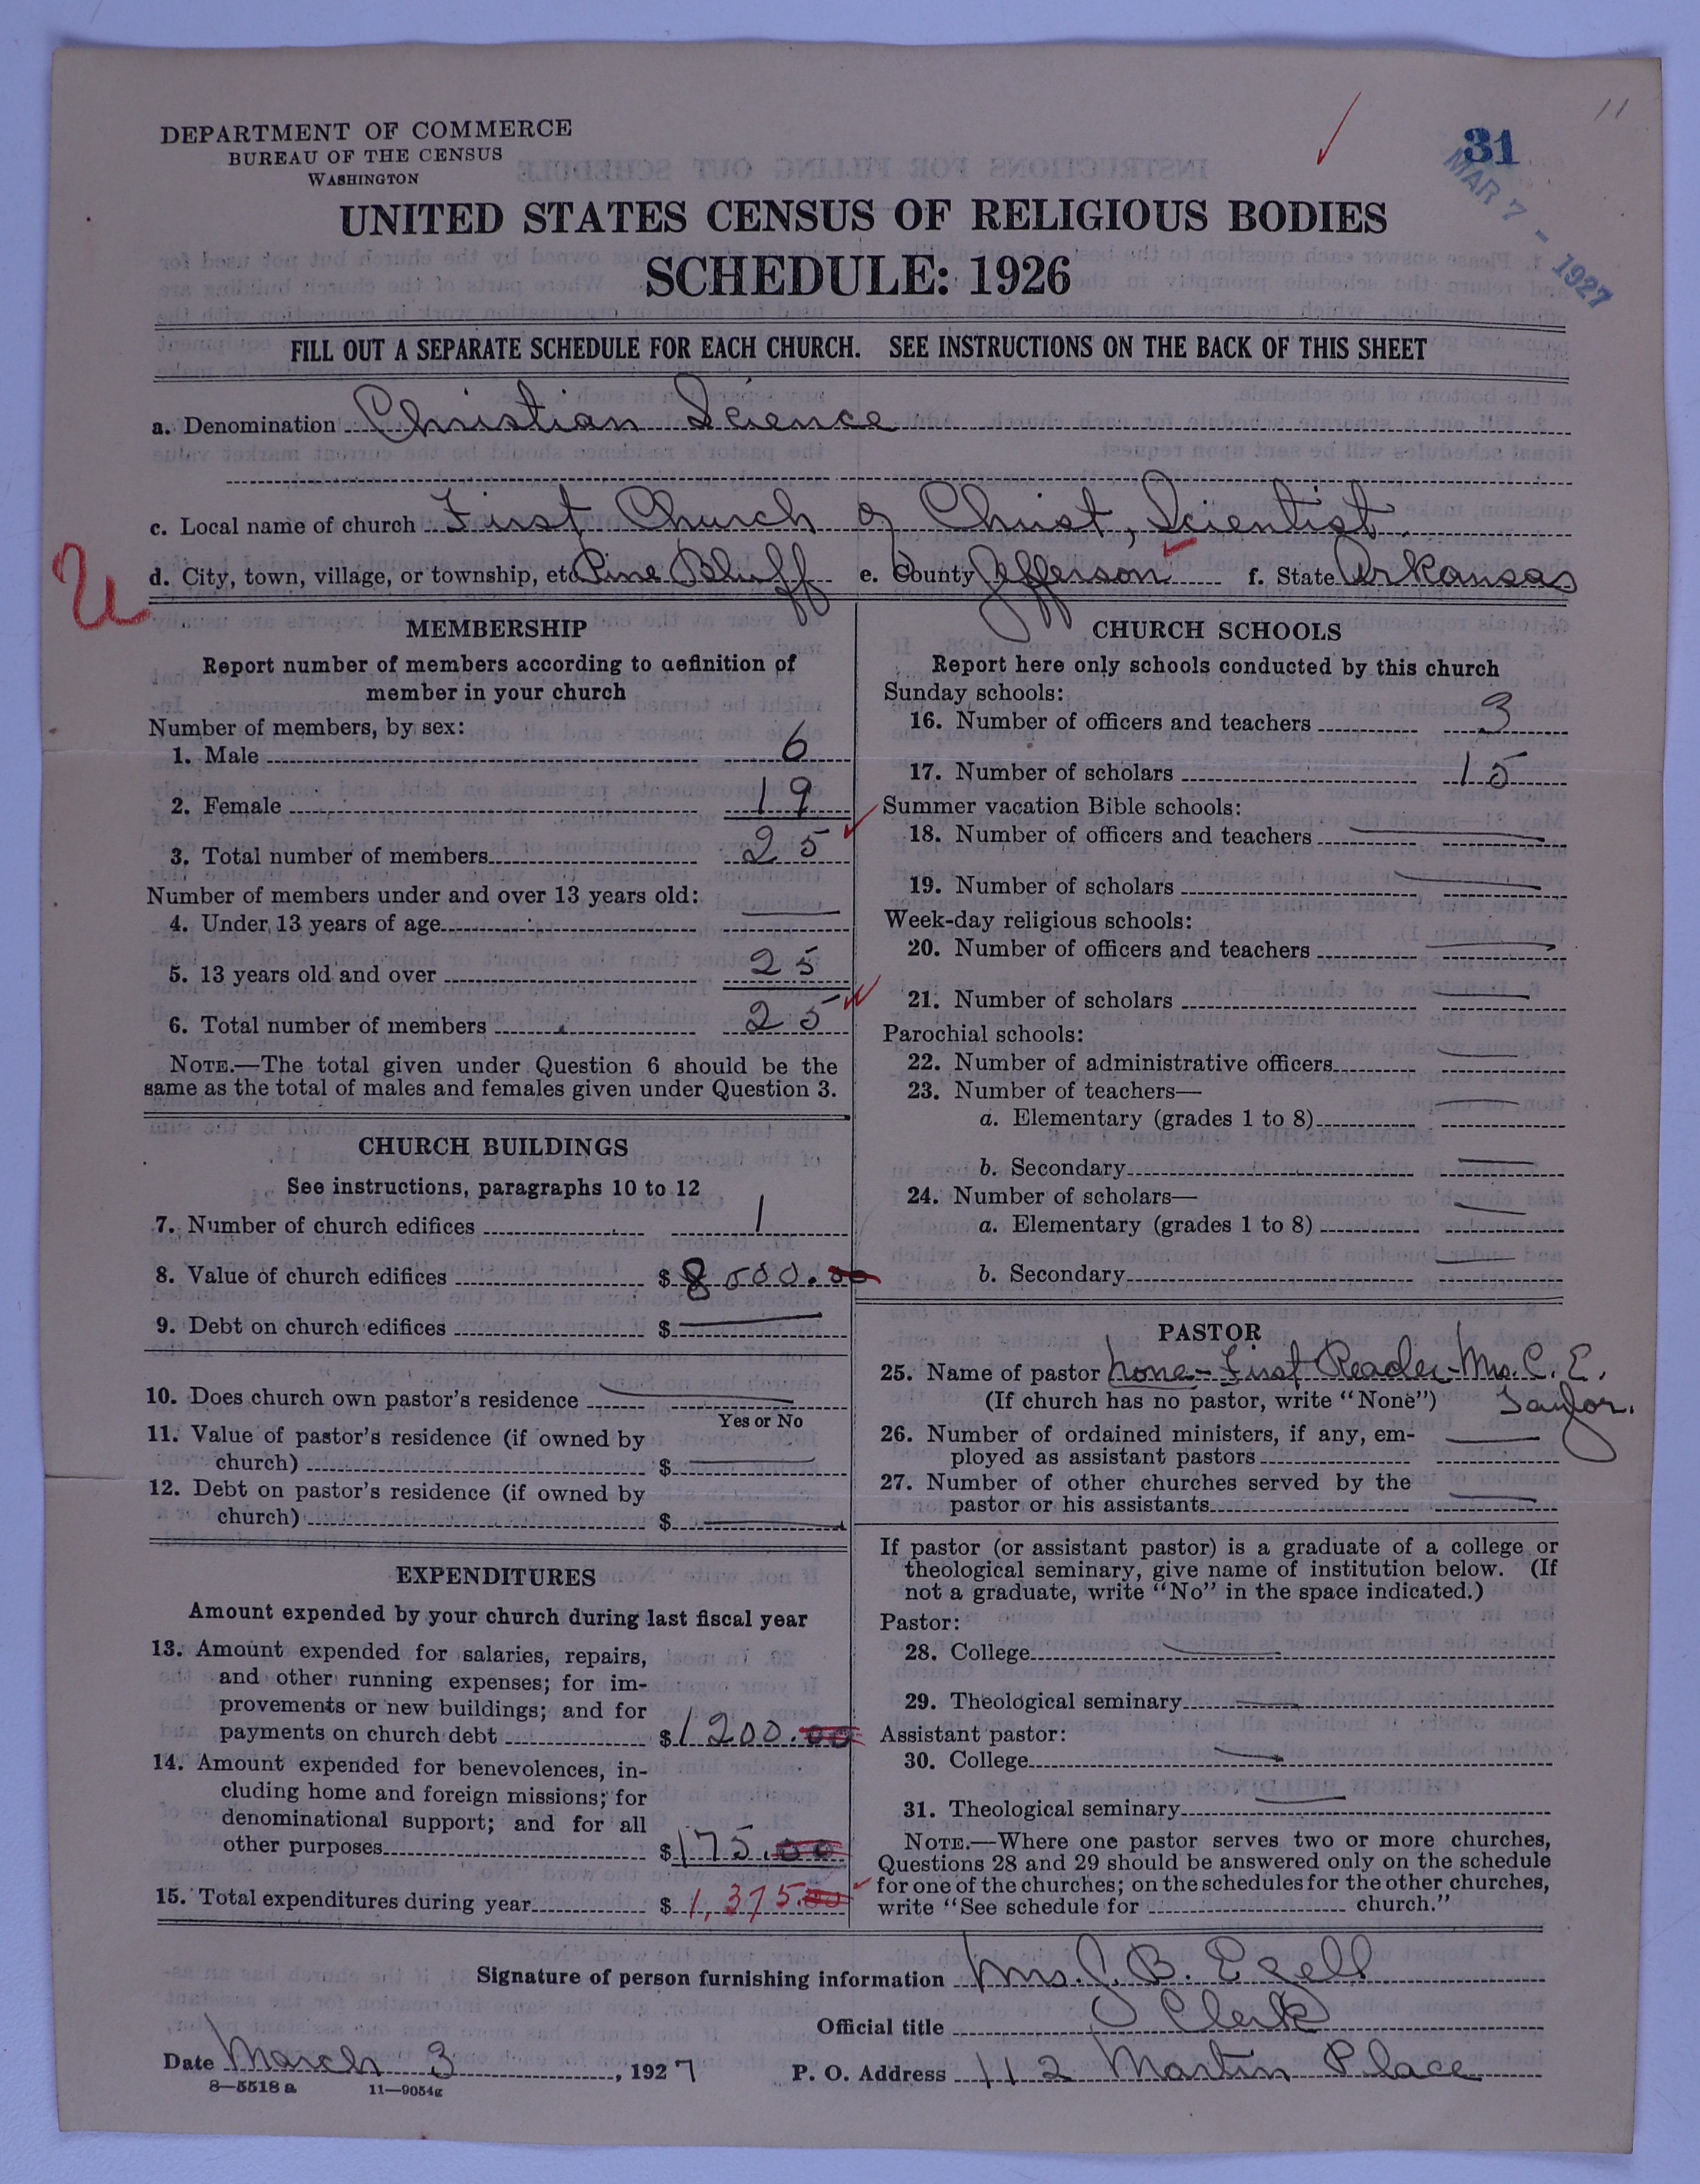 11
31
MAR 7 - 1927
DEPARTMENT OF COMMERCE
BUREAU OF THE CENSUS
WASHINGTON
UNITED STATES CENSUS OF RELIGIOUS BODIES
SCHEDULE: 1926
FILL OUT A SEPARATE SCHEDULE FOR EACH CHURCH. SEE INSTRUCTIONS ON THE BACK OF THIS SHEET
a. Denomination Christian Science
c. Local name of church First Church of Christ, Scientist
d. City, town, village, or township, etc. Pine Bluff e. County Jefferson f. State Arkansas
MEMBERSHIP
Report number of members according to definition of
member in your church
Number of members, by sex:
1. Male 6
2. Female 19
3. Total number of members 25
Number of members under and over 13 years old:
4. Under 13 years of age
5. 13 years old and over 25
6. Total number of members 25
NOTE.—The total given under Question 6 should be the
same as the total of males and females given under Question 3.
CHURCH BUILDINGS
See instructions, paragraphs 10 to 12
7. Number of church edifices 1
8. Value of church edifices $ 8000.00
9. Debt on church edifices $
10. Does church own pastor's residence
Yes or No
11. Value of pastor's residence (if owned by
church) $
12. Debt on pastor's residence (if owned by
church) $
EXPENDITURES
Amount expended by your church during last fiscal year
13. Amount expended for salaries, repairs,
and other running expenses; for im-
provements or new buildings; and for
payments on church debt $ 1200.00
14. Amount expended for benevolences, in-
cluding home and foreign missions; for
denominational support; and for all
other purposes $ 175.00
15. Total expenditures during year $ 1,375.00
CHURCH SCHOOLS
Report here only schools conducted by this church
Sunday schools:
16. Number of officers and teachers 3
17. Number of scholars 15
Summer vacation Bible schools:
18. Number of officers and teachers
19. Number of scholars
Week-day religious schools:
20. Number of officers and teachers
21. Number of scholars
Parochial schools:
22. Number of administrative officers
23. Number of teachers—
a. Elementary (grades 1 to 8)
b. Secondary
24. Number of scholars—
a. Elementary (grades 1 to 8)
b. Secondary
PASTOR
25. Name of pastor None - First Reader - Mrs. C. E.
(If church has no pastor, write "None") Saylor.
26. Number of ordained ministers, if any, em-
ployed as assistant pastors
27. Number of other churches served by the
pastor or his assistants
If pastor (or assistant pastor) is a graduate of a college or
theological seminary, give name of institution below. (If
not a graduate, write "No" in the space indicated.)
Pastor:
28. College
29. Theological seminary
Assistant pastor:
30. College
31. Theological seminary
NOTE.—Where one pastor serves two or more churches,
Questions 28 and 29 should be answered only on the schedule
for one of the churches; on the schedules for the other churches,
write "See schedule for church."
Signature of person furnishing information Mrs. J. B. Ezell
Official title Clerk
Date March 3, 1927 P. O. Address 112 Martin Place
8—5518 a 11—9054g